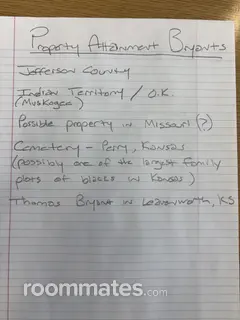 Property Attainment Bryants
Jefferson County
Indian Territory / O.K.
(Muskogee)
Possible property in Missouri (?)
Cemetery - Perry, Kansas
(possibly one of the largest family
plots of blacks in Kansas)
Thomas Bryant in Leavenworth, KS
roommates.com